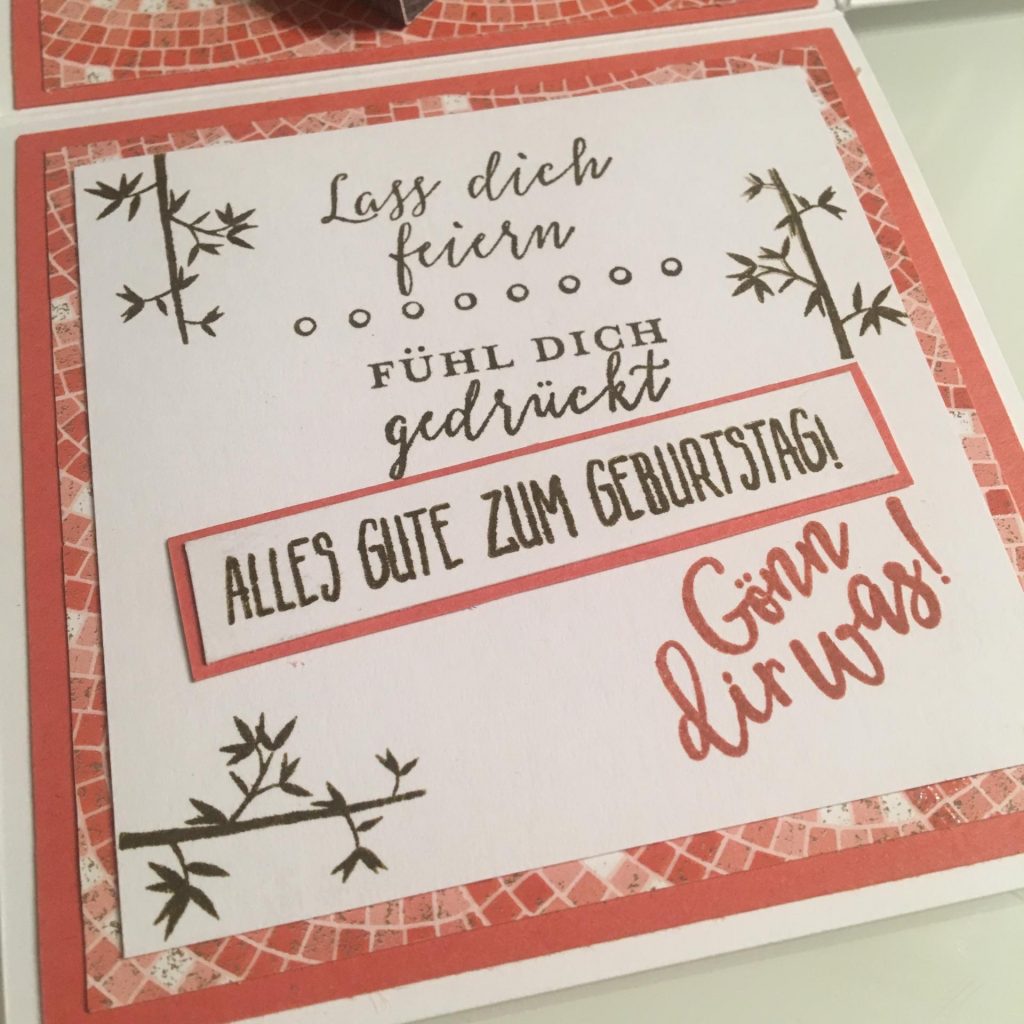 Lass dich
feiern
FÜHL DICH
gedrückt
ALLES GUTE ZUM GEBURTSTAG!
Gönn
dir was!